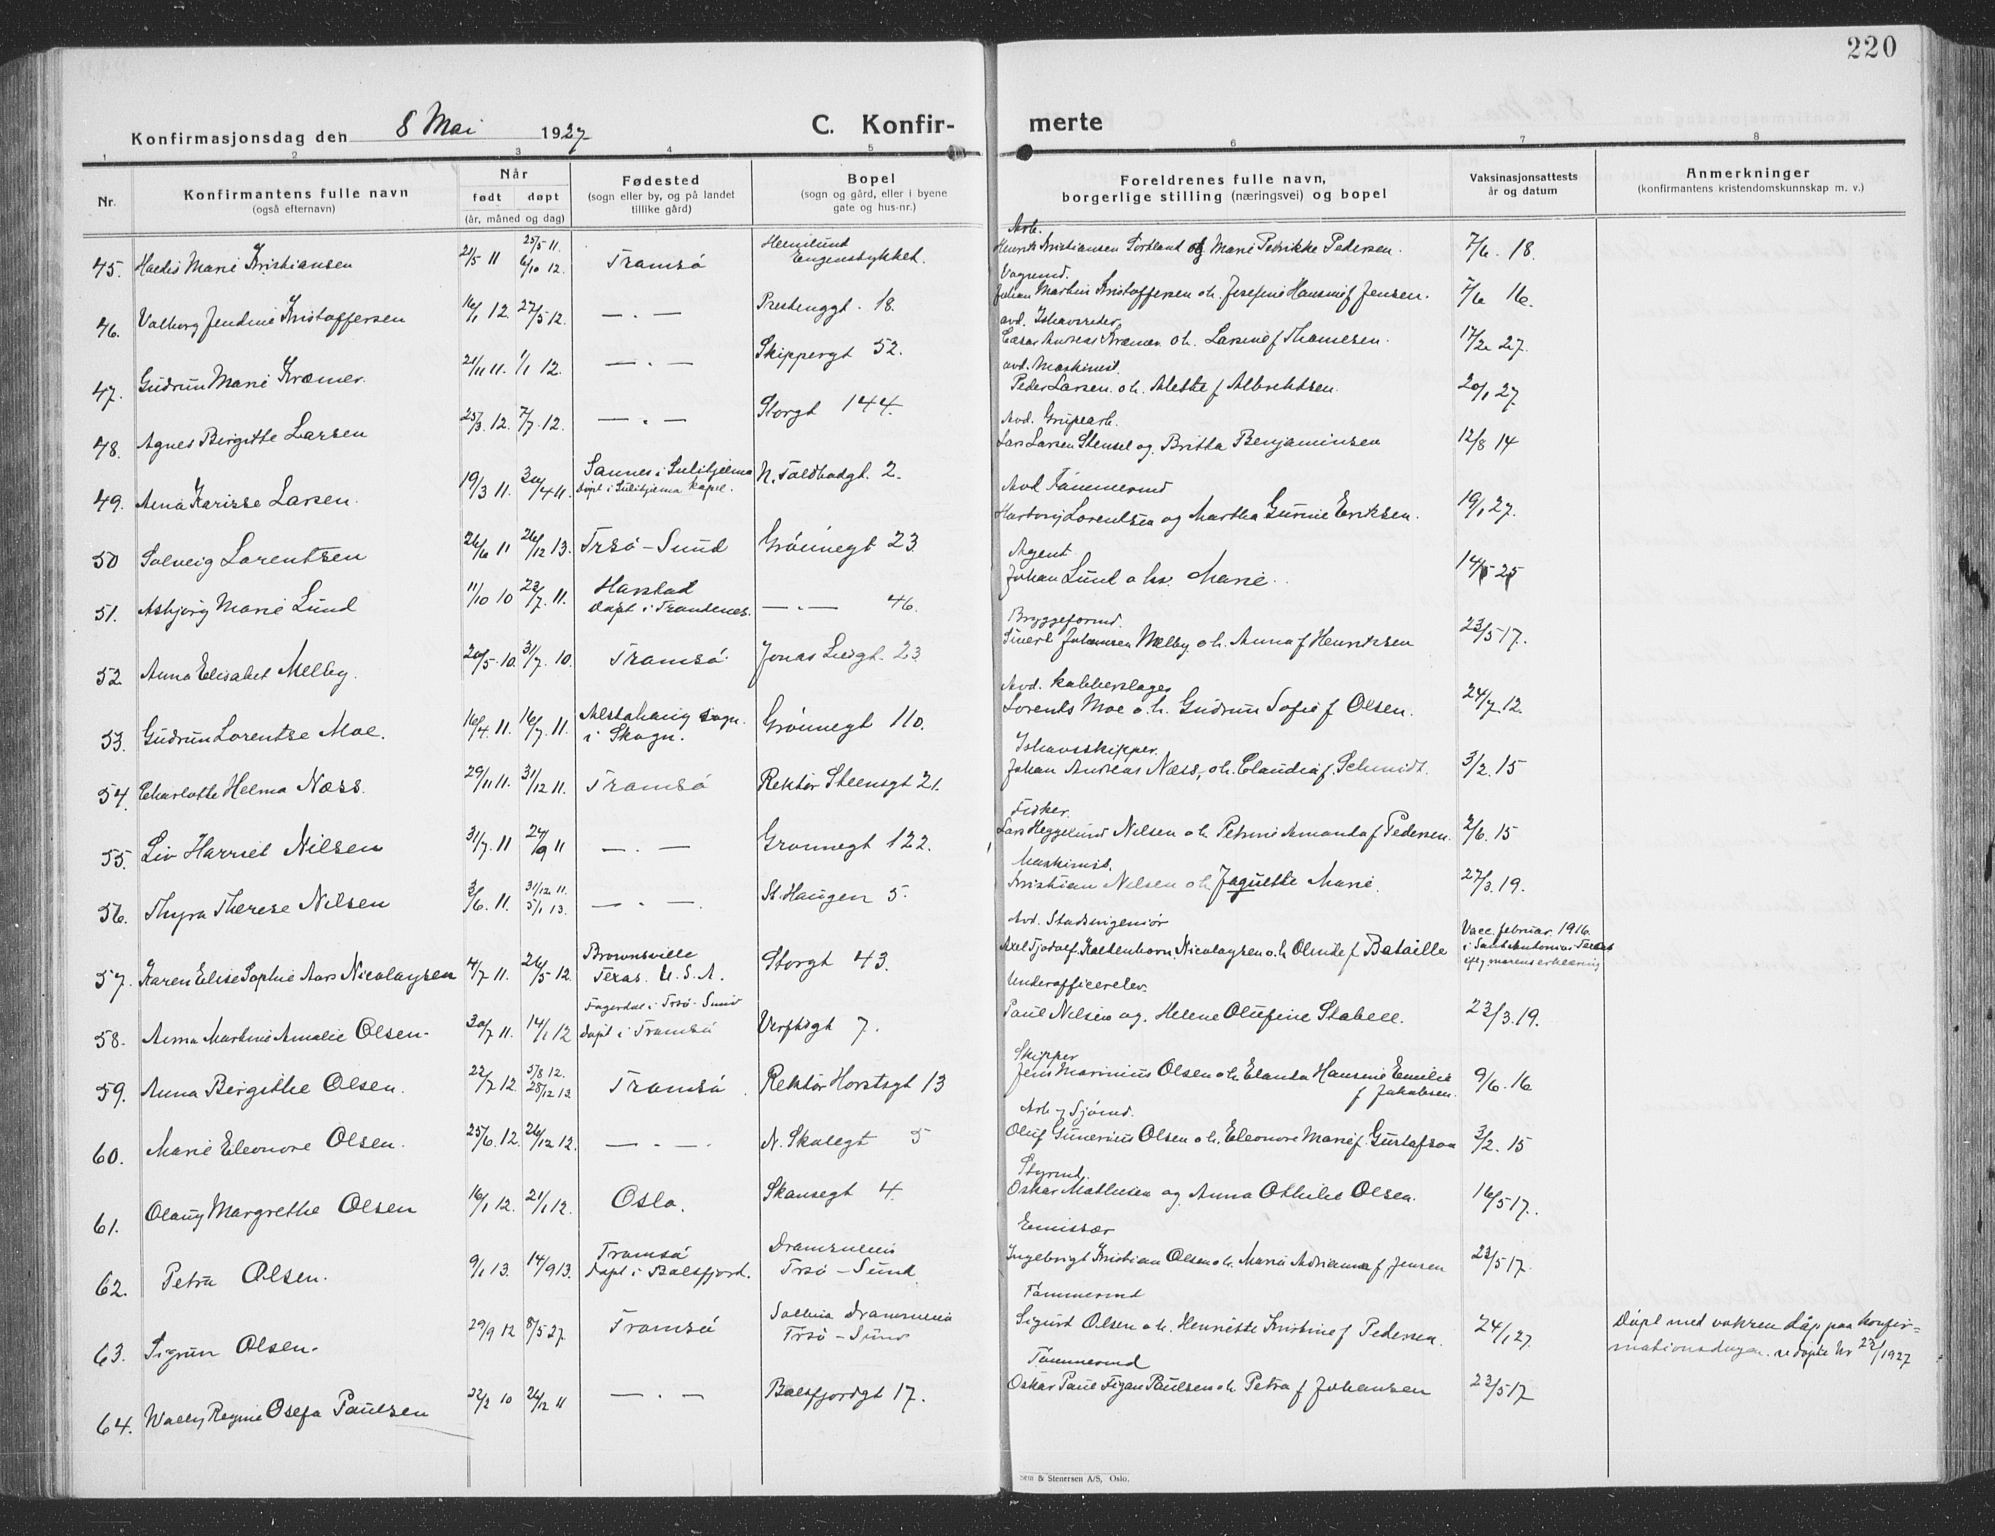 220
Konfirmasjonsdag den 8 Mai 1927
C. Konfir-
merte
1 2 3 4 5 6 7 8
Nr.
Konfirmantens fulle navn
(også efternavn)
Når
født døpt
(år, måned og dag)
Fødested
(sogn eller by, og på landet
tillike gård)
Bopel
(sogn og gård, eller i byene
gate og hus-nr.)
Foreldrenes fulle navn,
borgerlige stilling (næringsvei) og bopel
Vaksinasjonsattests
år og datum
Anmerkninger
(konfirmantens kristendomskunnskap m. v.)
Arb.
45. Marie Kristiansen 21/5 11 25/5 11. 6/10 12. Tromsø Kristiansen Sortland og Marie Pedrikke Pedersen. 7/6. 18.
46. Valborg Jendine Kristoffersen 16/1 12. 27/5 12. — . — Prestenggt. 18. Johan Martin Kristoffersen o.h. Josefine Hansine f Jensen. 7/6 16.
avd. Ishavsreder
47. Gudrun Marie Kræmer. 21/11 11. 1/1 12. — . — Skippergt 52. Andreas Kræmer o.h. Larsine f Thomesen. 17/2 27.
avd. Maskinist.
48. Agnes Birgitte Larsen 25/3. 12. 7/7. 12. — . — Storgt 144. Peder Larsen. o.h. Alette f Albrektsen. 20/1 27.
Avd. Grupearb.
49. Anna Karisse Larsen. 19/3 11. 30/4 11. Sannes i Sulitjelma Døpt i Sulitjelma kapel. N. Toldbodgt. 2. Lars Larsen Stensel og Britta Benjaminsen 12/8 14
Avd Tømmermd
50 Solveig Lorentsen 26/6 11 26/12 13. Trsø-Sund Grønnegt 23. Hartvig Lorentsen og Martha Gurine Eriksen. 19/1 27.
Agent
51. Asbjørg Marie Lund 11/10 10 23/7. 11. Harstad Døpt i Trondenes. — . — 46. Johan Lund o hv. Marie. 14/5 25
Bryggeformd.
52. Anna Elisabet Melby. 20/5. 10. 31/7. 10. Tromsø Jonas Liesgt. 23. Sivert Johansen Melby o.h. Anna f Henriksen 23/5 17.
Avd. kobberslager
53. Gudrun Lorentse Moe. 16/4. 11. 16/7. 11. Alstahaug sogn. i Skogn. Grønnegt 110. Lorents Moe o.h. Gudrun Sofie f Olsen. 24/7 12.
Ishavsskipper.
54. Charlotte Helma Næss. 29/11 11. 31/12 11. Tromsø Rektor Steensgt 21. Johan Andreas Næss, o.h. Claudia f. Schmidt. 3/2. 15
Fisker.
55. Liv Harriet Nilsen 31/7. 11 24/9 11 — . — Grønnegt 122. Lars Heggelund Nilsen o.h. Petrine Amanda f Pedersen. 2/6. 15
Maskinist.
56. Thyra Therese Nilsen 3/6. 11. 31/12 11. 5/1 13. — . — St. Haugen 5. Kristian Nilsen o.h. Jaquette Marie. 27/3. 19.
Avd. Stadsingeniør
57. Karen Elise Sophie Aars Nicolaysen 4/7 11. 26/5 12. Brownsville Texas. U.S.A. Storgt 43. Axel Tjodolf. Koltenborn Nicolaysen o.h. Olmite f Bataille Vacc. februar. 1916. i Santo Antonius Texas
Underofficerelev.
58. Anna Martine Amalie Olsen. 30/7 11. 14/1 12 Fagerdal i Trsø-Sund døpt i Tromsø Verftsgt 7. Paul Nilsen og. Helene Olufine Stabell. 23/3. 19.
Skipper
59. Anna Birgithe Olsen. 22/7 12. 5/8 12. 28/12 13. Tromsø Rektor Horstsgt 13 Jens Marinius Olsen o.h. Elanda Hansine Emilie f Jakobsen. 9/6. 16
Arb og Sjømd.
60. Marie Eleonore Olsen. 25/6. 12. 26/12 12. — . — . N. Skolegt 5 Oluf Gunerius Olsen o.h. Eleonore Marie f. Gustafson 3/2. 15
Styrmd.
61. Olaug Margrethe Olsen 16/1 12. 21/1 12. Oslo. Skansegt 4. Oskar Mathisen og Anna Othilie Olsen. 16/5 17.
Emissær
62. Petra Olsen. 9/1 13. 14/9 13. Tromsø døpt i Balsfjord. Dramsveien Trsø-Sund Ingebrigt Kristian Olsen o.h. Marie Adriana f. Jensen 23/5 17.
Tømmermd
63. Sigrun Olsen. 29/9 12 8/5 27. Tromsø Dramsveien Trsø-Sund Sigurd Olsen o.h. Henriette Kristine f Pedersen. 24/1 27. Døpt med voksen dåp paa konfir=
mationsdagen. se døpte Nr 22/1927
Tømmermd
64. Wally Regine Osefa Paulsen 22/2 10 26/12 11 — . — Balsfjordgt 17. Oskar Paul Figan Paulsen o.h. Petra f Johansen 23/5 17
Sem & Stenersen A/S, Oslo.